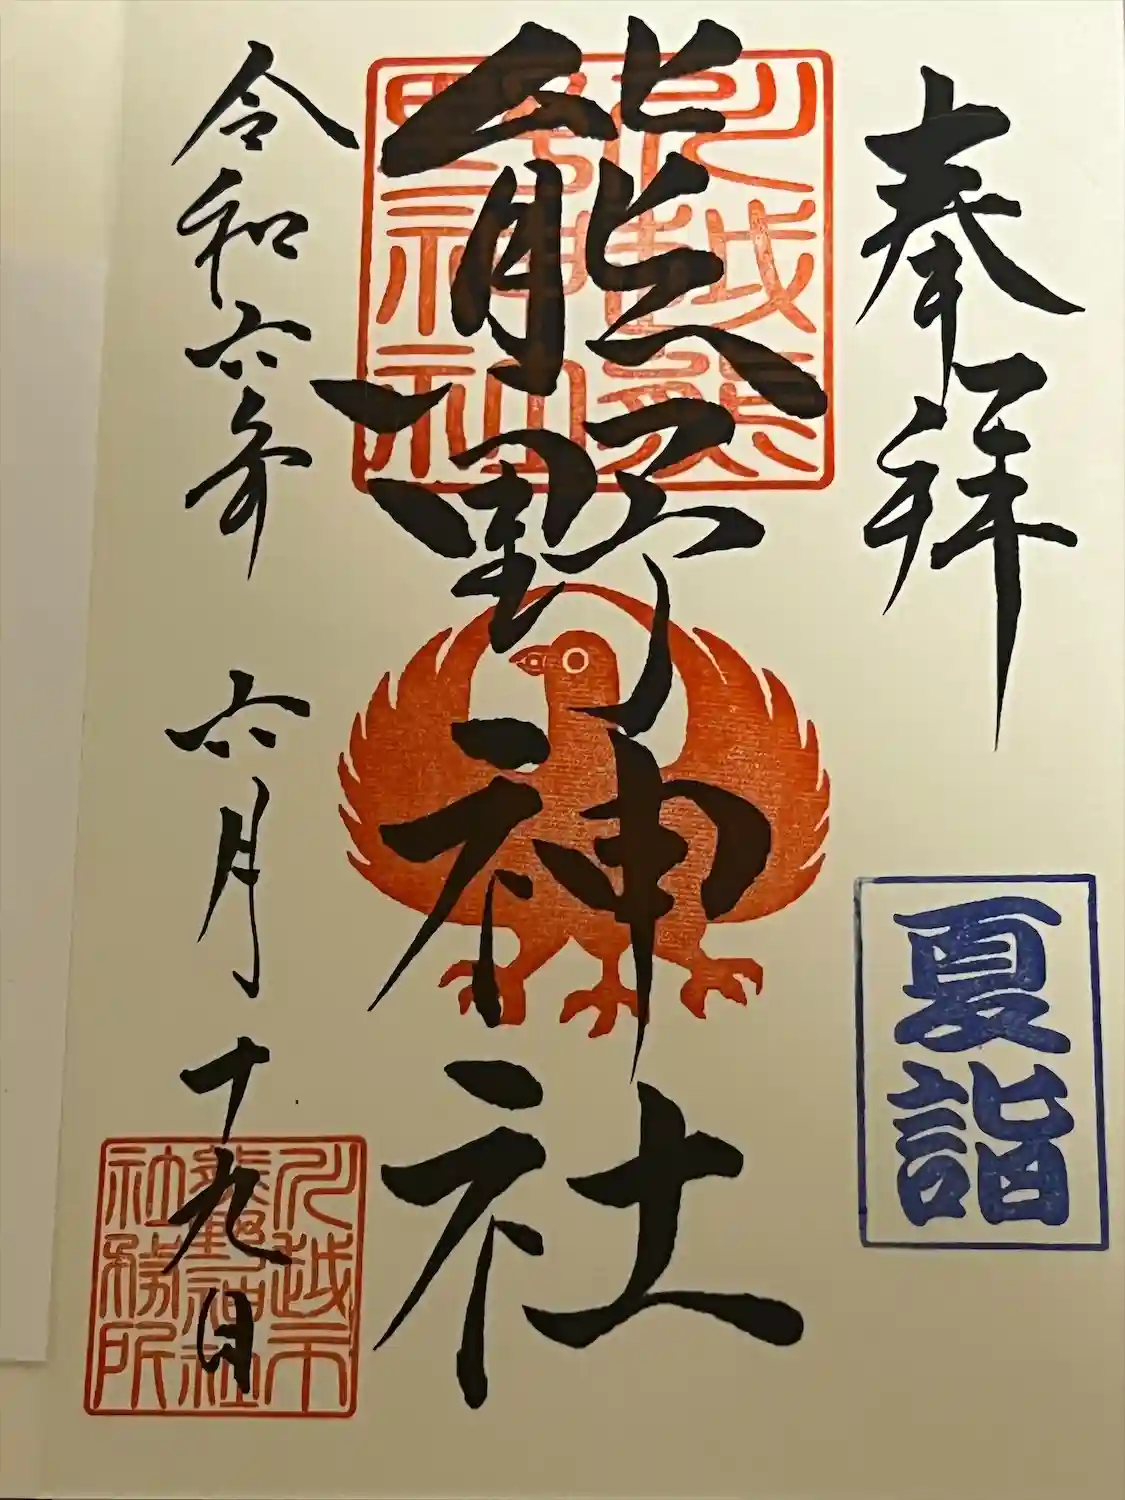 奉拝
夏詣
熊野神社
川越熊
野神社
令和六年 六月十九日
川越市
熊野神社
社務所